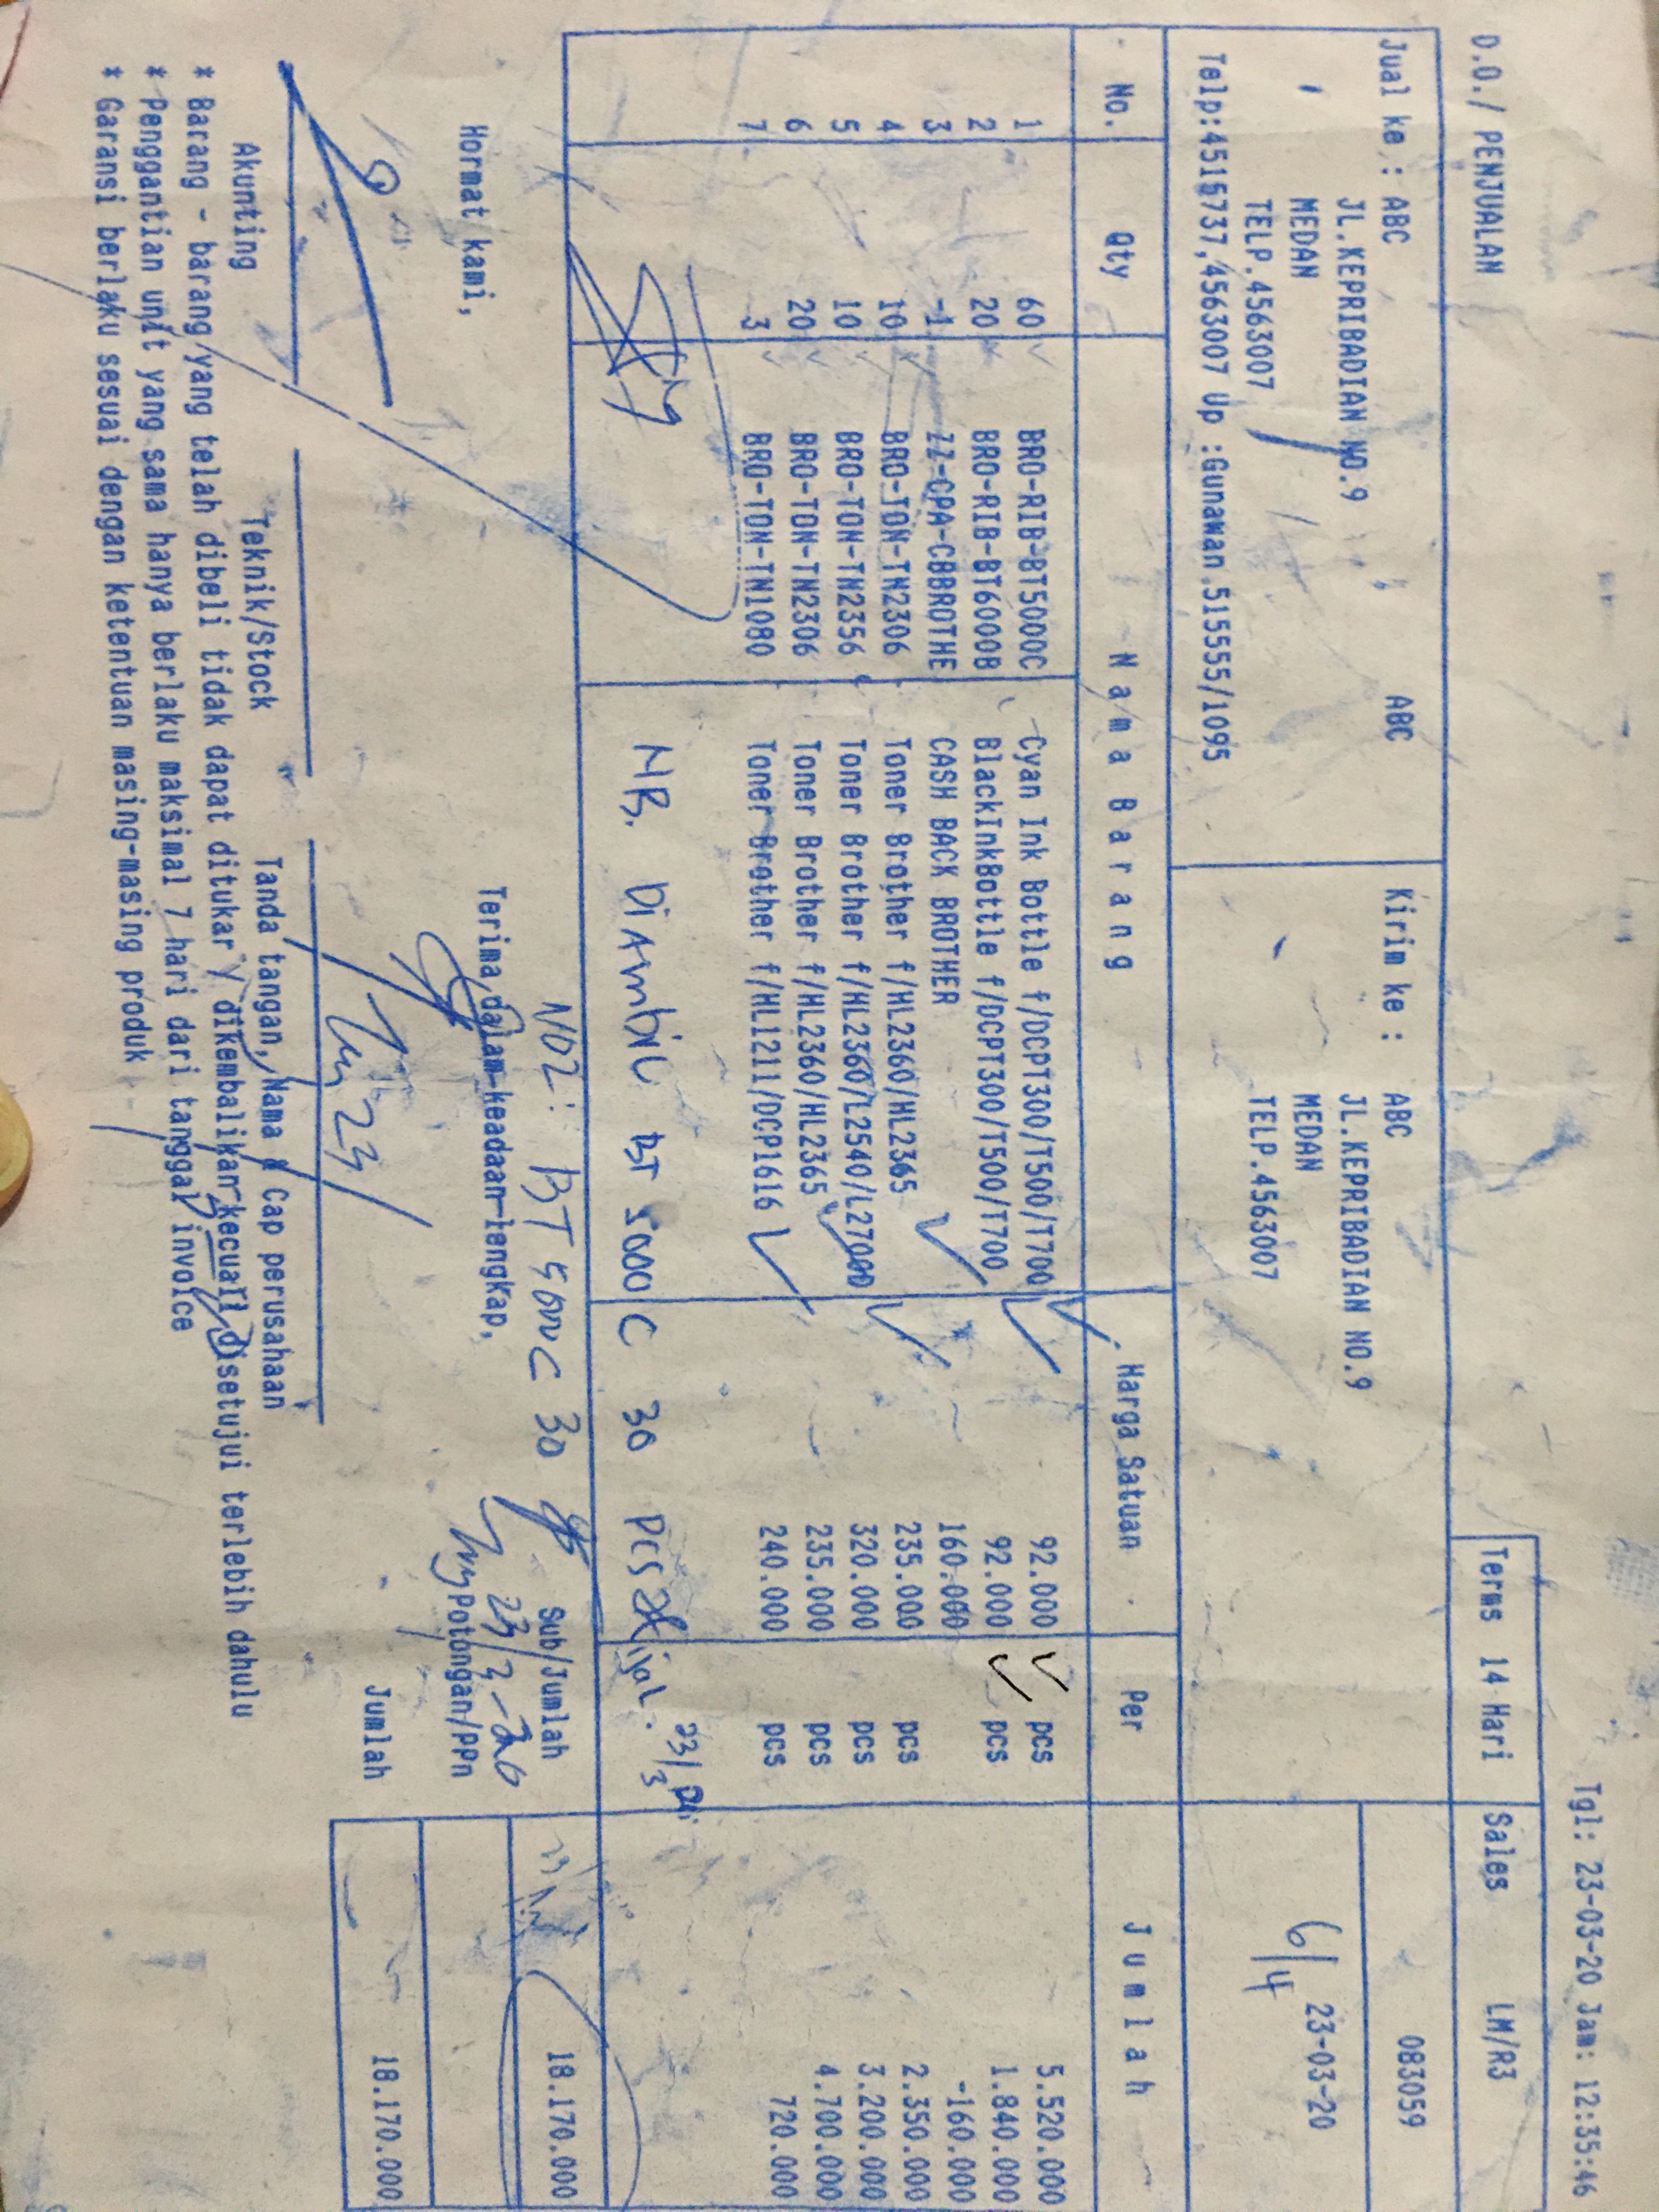 Tgl: 23-03-20 Jam: 12:35:46
D.O./ PENJUALAN
Terms 14 Hari Sales LM/R3
Jual ke : ABC ABC Kirim ke : ABC 083059
JL.KEPRIBADIAN NO.9 JL.KEPRIBADIAN NO.9
MEDAN MEDAN 6/4 23-03-20
TELP.4563007 TELP.4563007
Telp:4515737,4563007 Up :Gunawan.515555/1095
No. Qty Nama Barang Harga Satuan Per Jumlah
1 60 BRO-RIB-BT5000C Cyan Ink Bottle f/DCPT300/T500/T700 92.000 pcs 5.520.000
2 20 BRO-RIB-BT6000B BlackInkBottle f/DCPT300/T500/T700 92.000 pcs 1.840.000
3 -1 ZZ-CPA-CBBROTHE CASH BACK BROTHER 160.000 -160.000
4 10 BRO-TON-TN2306 Toner Brother f/HL2360/HL2365 235.000 pcs 2.350.000
5 10 BRO-TON-TN2356 Toner Brother f/HL2360/L2540/L2700D 320.000 pcs 3.200.000
6 20 BRO-TON-TN2306 Toner Brother f/HL2360/HL2365 235.000 pcs 4.700.000
7 3 BRO-TON-TN1080 Toner Brother f/HL1211/DCP1616 240.000 pcs 720.000
NB. DiAmbiL BT 5000 C 30 Pcs 23/3
NO2: BT 5000C 30
Sub/Jumlah 18.170.000
Hormat kami, Terima dalam keadaan lengkap,
23/3-20
Potongan/PPn
Jumlah 18.170.000
23/
Akunting Teknik/Stock Tanda tangan, Nama & Cap perusahaan
* Barang - barang yang telah dibeli tidak dapat ditukar / dikembalikan kecuali disetujui terlebih dahulu
* Penggantian unit yang sama hanya berlaku maksimal 7 hari dari tanggal invoice
* Garansi berlaku sesuai dengan ketentuan masing-masing produk